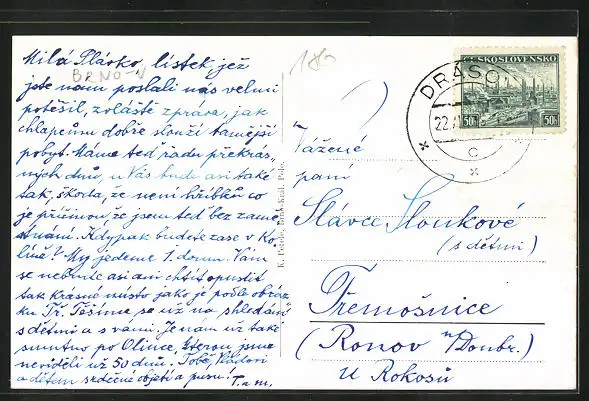 Milá Slávko, lístek jež
jste nám poslali nás velmi
potěšil, zvláště zpráva, jak
chlapcům dobře slouží tamější
pobyt. Máme teď řadu překrás-
ných dnů, u Vás bude asi také
tak, škoda, že není hříbků co
je příčinou, že jsem teď bez zamě-
stnání. Kdypak budete zase v Ko-
líně? My jedeme 1. domů. Vám
se nebude asi ani chtít opustit
tak krásné místo jako je podle obráz-
ku Tř. Těšíme se už na shledání
s dětmi a s vámi. Je nám už také
smutno po Olince, kterou jsme
neviděli už 50 dnů. Tobě,
a dětem srdečné objetí a pusu! T. a m.
BRNO-V
180
K. Potěšlo, Brno-Král. Pole.
ČESKOSLOVENSKO
50h 50h
DRÁSO
22.
C
Vážené
paní
Slávce Sloukové
(s dětmi)
Třemošnice
(Ronov n/Doubr.)
u Rokosů